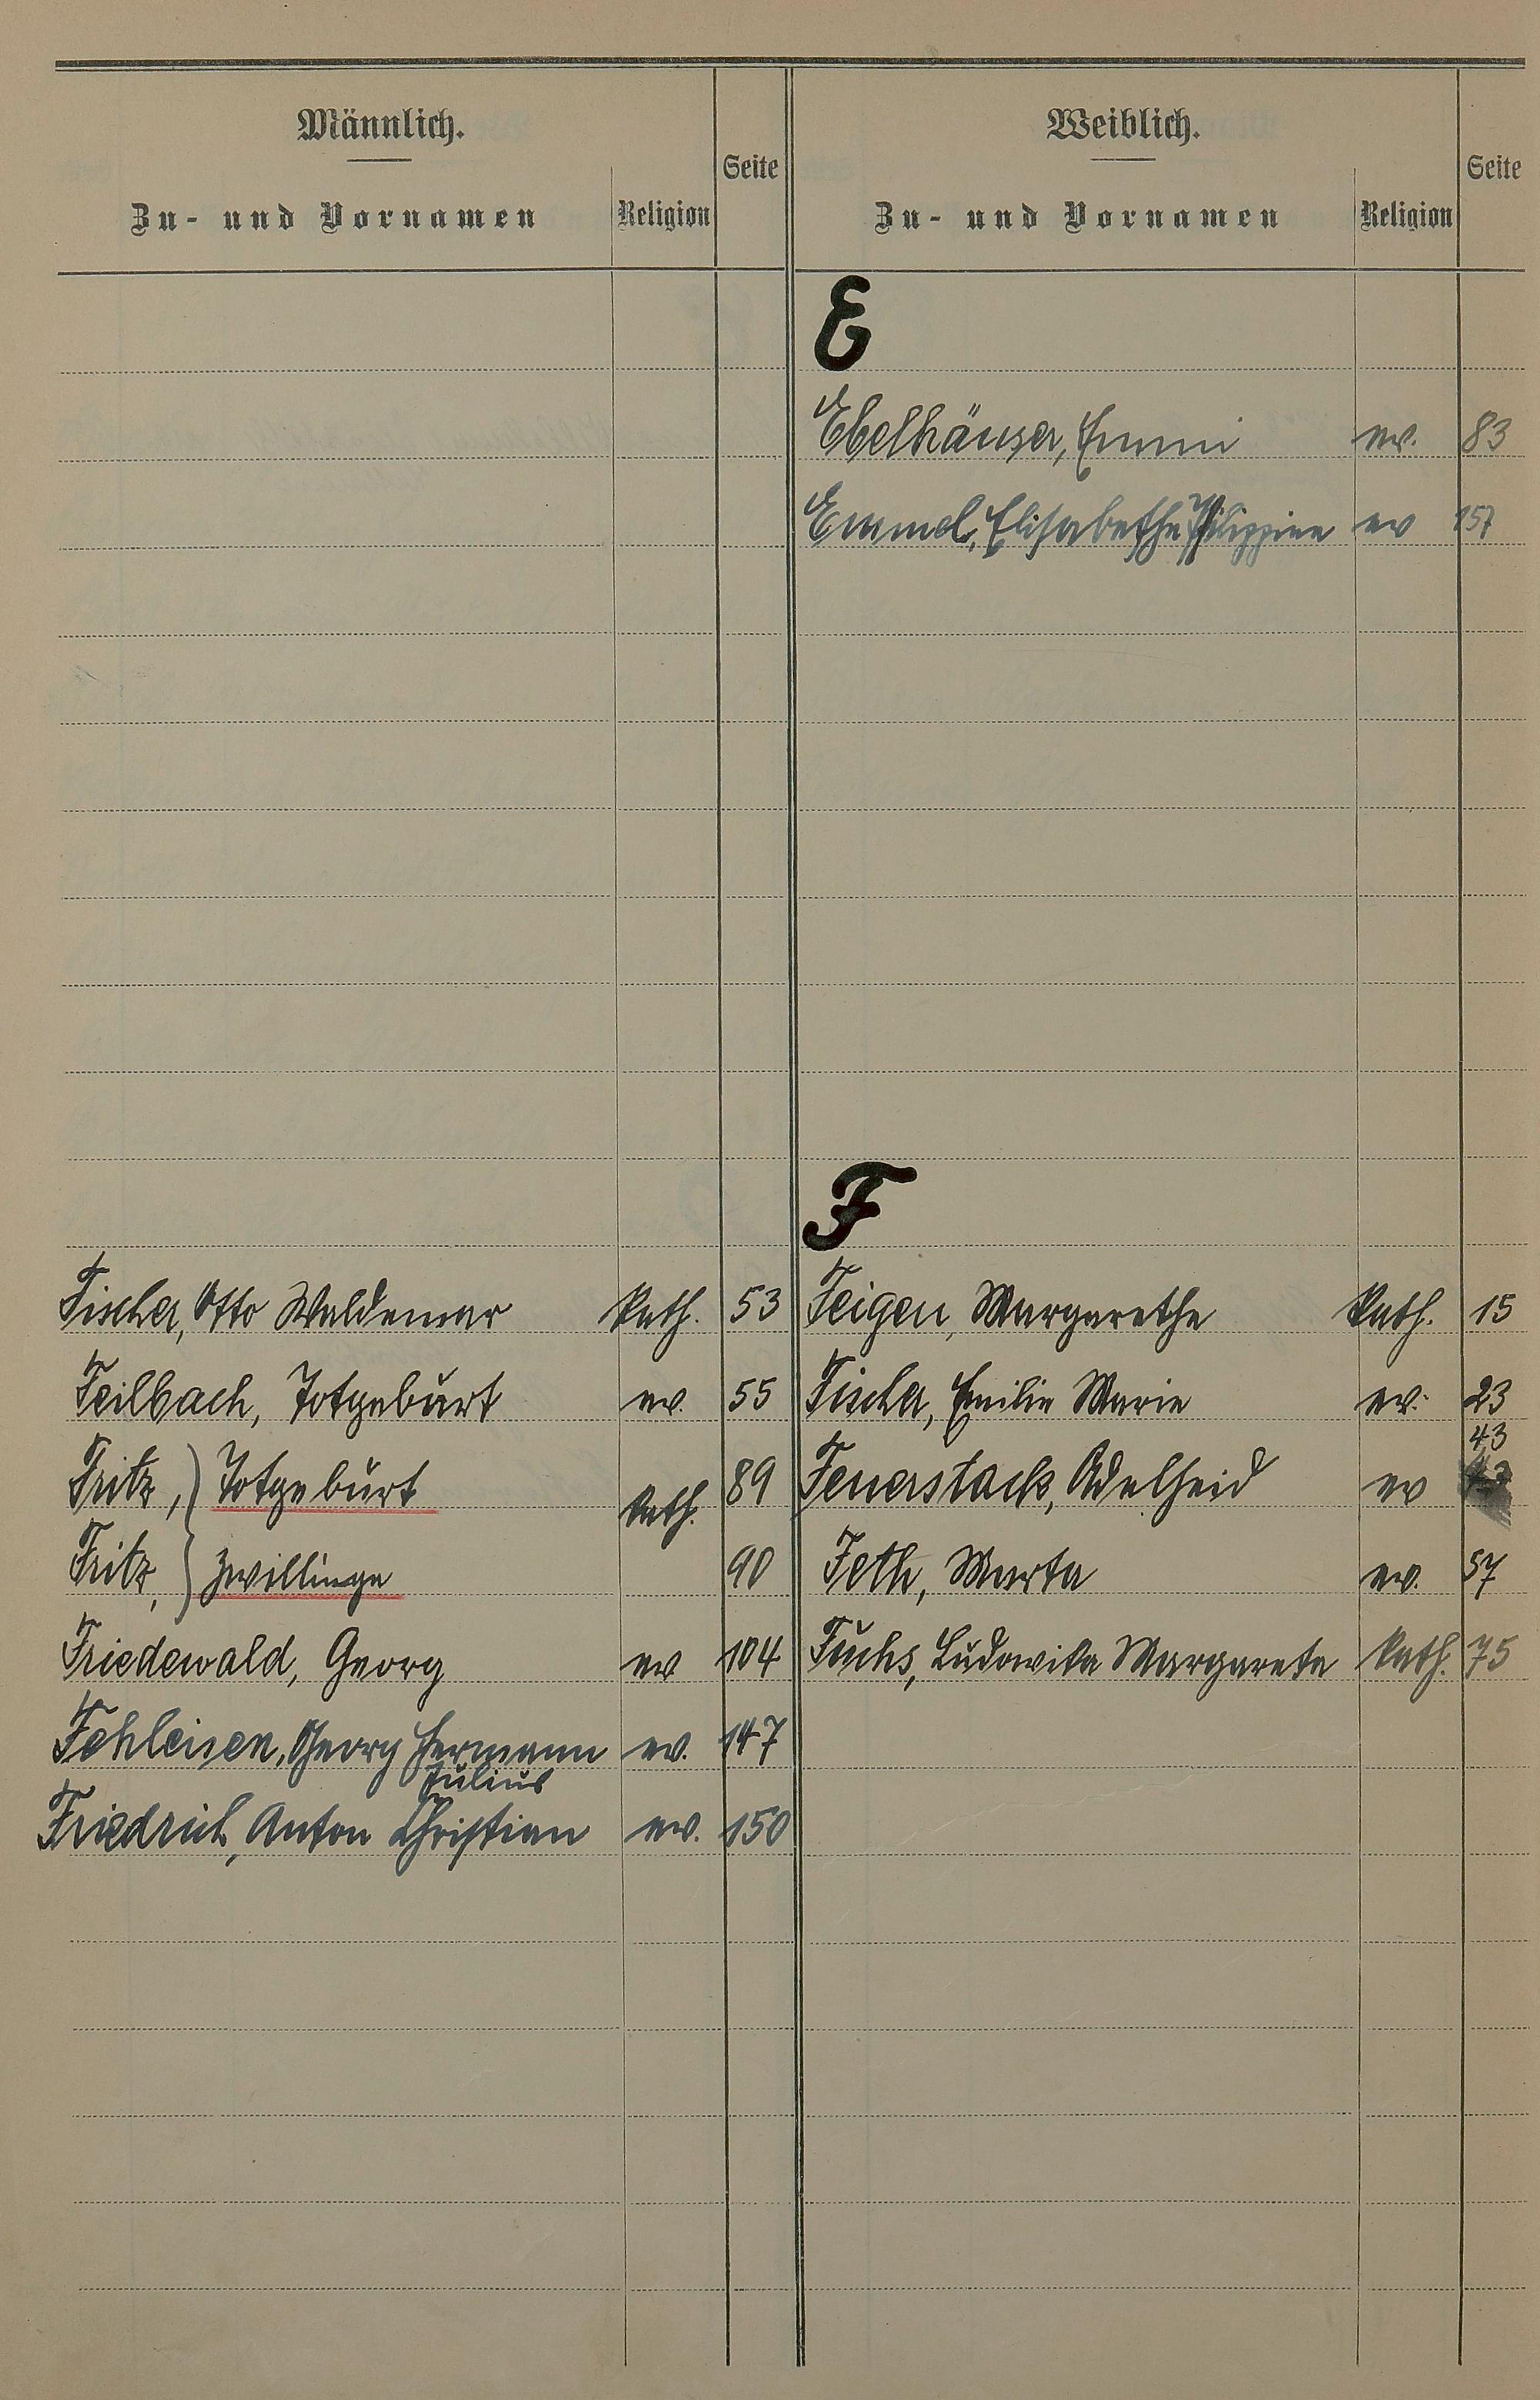 Männlich.
Zu- und Vornamen
Religion
Seite
Weiblich.
Zu- und Vornamen
Religion
Seite
E
Ebelhäuser, Emmi ev. 83
Emmel, Elisabethe Philippine ev 157
F
Fischer, Otto Waldemar kath. 53
Feilbach, Totgeburt ev. 55
Fritz, } Totgeburt kath. 89
Fritz, } Zwillinge 90
Friedewald, Georg ev 104
Fehleisen, Georg Hermann ev. 147
Julius
Friedrich, Anton Christian ev. 150
Feigen, Margarethe kath. 15
Fischer, Emilie Marie ev. 23
43
Feuerstack, Adelheid ev
Feth, Marta ev. 57
Fuchs, Ludowika Margareta kath. 75